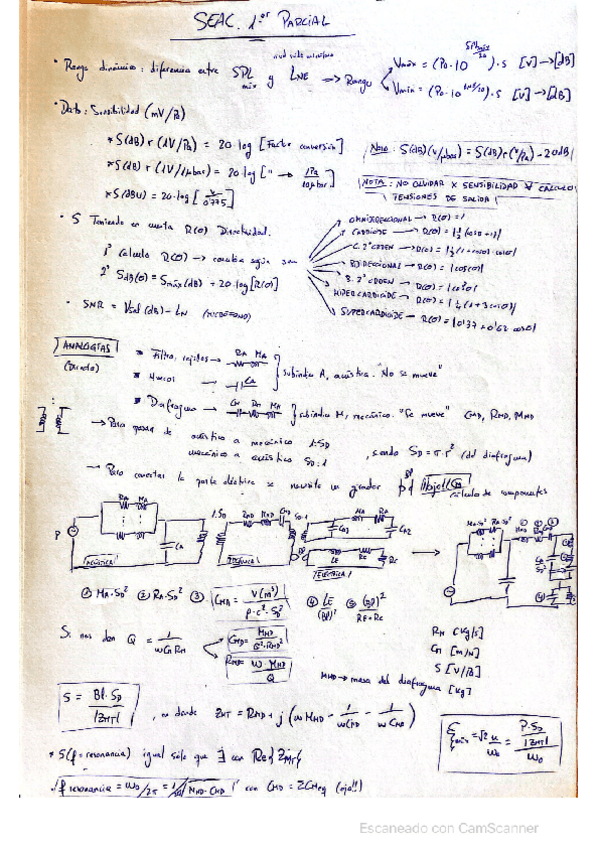 SEAC. 1er PARCIAL
· Rango dinámico: diferencia entre SPL máx y LNE → Rango
Vmáx = (P0·10^(SPLmáx/20))·S [V]→[dB]
Vmin = (P0·10^(LNE/20))·S [V]→[dB]
· Dato: Sensibilidad (mV/Pa)
* S(dB) r (1V/Pa) = 20·log [Factor conversión]
* S(dB) r (1V/μbar) = 20·log [" → 1Pa/10μbar]
* S(dBu) = 20·log [V/0'775]
Nota: S(dB)(V/μbar) = S(dB) r (V/Pa) - 20dB
NOTA: NO OLVIDAR X SENSIBILIDAD X CALCULO
TENSIONES DE SALIDA
· S Teniendo en cuenta R(θ) Directividad.
1º Calculo R(θ) → cambia según sea
2º SdB(θ) = Smáx(dB) + 20·log[R(θ)]
OMNIDIRECCIONAL → R(θ) = 1
CARDIOIDE → R(θ) = |½(cosθ+1)|
C. 2º ORDEN → R(θ) = |½(1+cosθ)·cosθ|
BIDIRECCIONAL → R(θ) = |cos(θ)|
B. 2º ORDEN → R(θ) = |cos²θ|
HIPERCARDIOIDE → R(θ) = |¼(1+3cosθ)|
SUPERCARDIOIDE → R(θ) = |0'37+0'62 cosθ|
· SNR = Vsal (dB) - LN (MICRÓFONO)
ANALOGÍAS
(Dorado)
* Filtro, rejillas → RA MA
* Huecos → CA
subíndice A, acústica. "No se mueve"
* Diafragma → CM RM MM
subíndice M, mecánico. "Se mueve" CMD, RMD, MMD
→ Para pasar de acústico a mecánico 1:SD
mecánico a acústico SD:1
, siendo SD = π·r² (del diafragma)
→ Para conectar la parte eléctrica se necesita un girador
cálculo de componentes
P RA MA CA 1:SD RMD MMD CMD SD:1 MA RA CA2 CA2 LE RE RC
ACÚSTICA MECÁNICA ELÉCTRICA
① MA·SD² ② RA·SD² ③ CMA = V(m³)/(ρ·c²·SD²) ④ LE/(Bl)² ⑤ (Bl)²/(RE+RC)
Si nos dan Q = 1/(ω CM RM)
CMD = MMD/(Q²·RMD²)
RMD = ω·MMD/Q
RM [Kg/s]
CM [m/N]
S [V/Pa]
MMD → masa del diafragma [Kg]
S = Bl·SD/|ZMT|, en donde ZMT = RMD + j(ω MMD - 1/(ω CMD) - 1/(ω CMD))
ξmáx = √2 u/ω0 = (P·SD/|ZMT|)/ω0
* S(f=resonancia) igual sólo que ∃ con Re{ZMT}
f resonancia = ω0/2π = 1/2π√(MMD·CMD) con CMD = ΣCMeq (ojo!!)
Escaneado con CamScanner